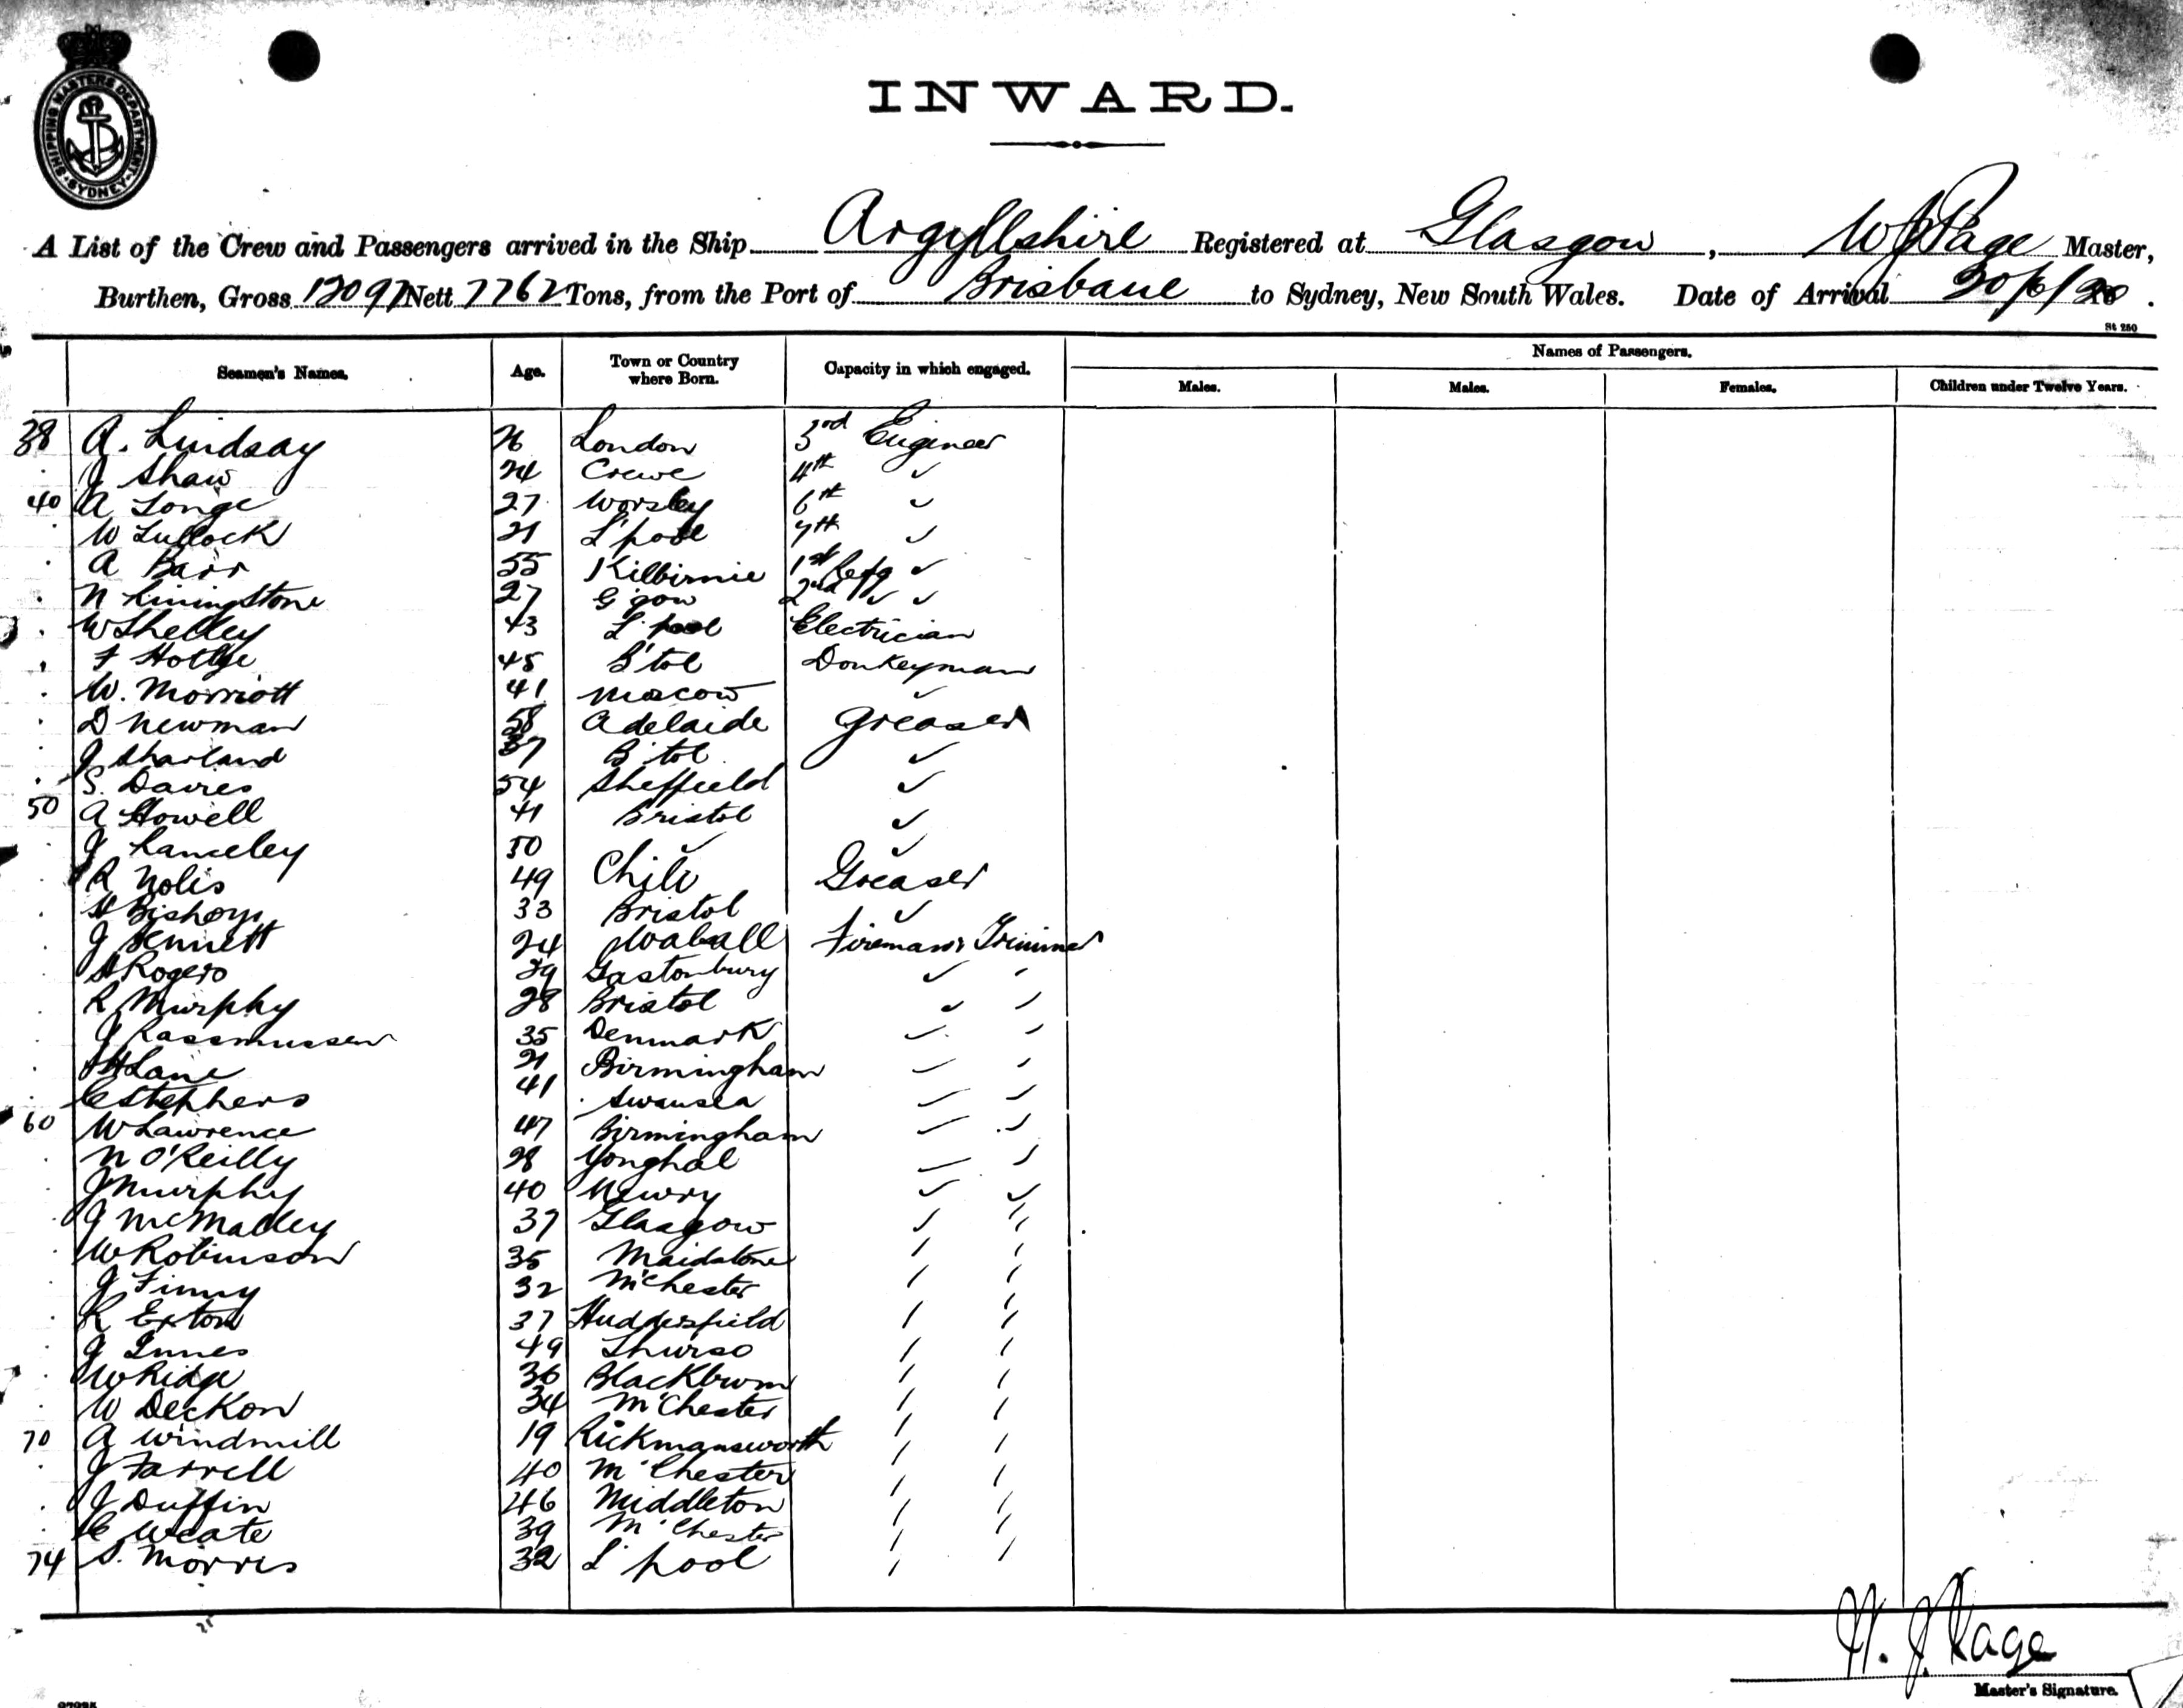 SHIPPING MASTERS DEPARTMENT SYDNEY
INWARD.
A List of the Crew and Passengers arrived in the Ship Argyllshire Registered at Glasgow, W J Page Master,
Burthen, Gross 12097 Nett 7762 Tons, from the Port of Brisbane to Sydney, New South Wales. Date of Arrival 20/6/20.
St 250
Seamen's Names. Age. Town or Country where Born. Capacity in which engaged. Names of Passengers.
Males. Males. Females. Children under Twelve Years.
38 A. Lindsay 26 London 3rd Engineer
J Shaw 24 Crewe 4th ✓
40 A Longe 27 Worsley 6th ✓
W Tullock 21 L'pool 7th ✓
A Barr 55 Kilbirnie 1st Refg ✓
N Livingstone 27 G'gow 2nd ✓ ✓
W Shelley 43 L'pool Electrician
F 45 B'tol Donkeyman
W. Morriott 41 Moscow ✓
D Newman 58 Adelaide Greaser
J Sharland 37 B'tol ✓
S. Davies 54 Sheffield ✓
50 A Howell 41 Bristol ✓
J Lanceley 50 ✓ ✓
R Nolis 49 Chili Greaser
H Bishop 33 Bristol ✓
J Bennett 24 Fireman & Trimmer
H Rogers 29 Gastonbury ✓ ✓
R Murphy 28 Bristol ✓ ✓
J Rassmussen 35 Denmark ✓ ✓
H Lane 21 Birmingham ✓ ✓
C Stephens 41 Swansea ✓ ✓
60 W Lawrence 47 Birmingham ✓ ✓
N O'Reilly 28 Yonghal ✓ ✓
J Murphy 40 Newry ✓ ✓
J McMalley 37 Glasgow ✓ "
W Robinson 35 Maidstone " "
J Finny 32 M'Chester " "
R Exton 37 Huddersfield " "
J Innes 49 Thurso " "
W Ridge 36 Blackburn " "
W Deckon 34 M'Chester " "
70 A Windmill 19 Rickmansworth " "
J Farrell 40 M'Chester " "
J Duffin 46 Middleton " "
C Weate 39 M'Chester " "
74 S. Morris 32 L'pool " "
W. J. Page
Master's Signature.